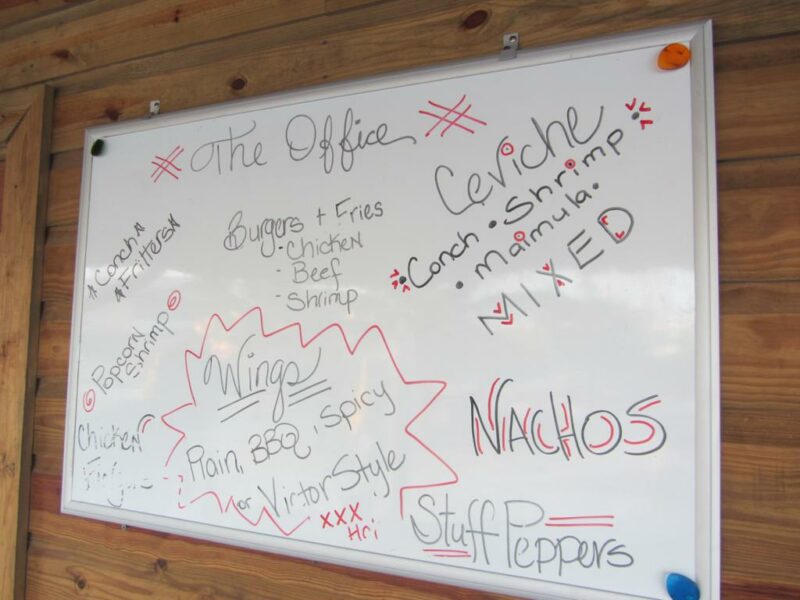 The Office
Conch
Fritters
Popcorn
Shrimp
Chicken
Burgers + Fries
- Chicken
- Beef
- Shrimp
Ceviche
Conch • Shrimp
• maimula •
MIXED
Wings
Plain, BBQ, Spicy
or Victor Style
XXX
Hri
NACHOS
Stuff Peppers